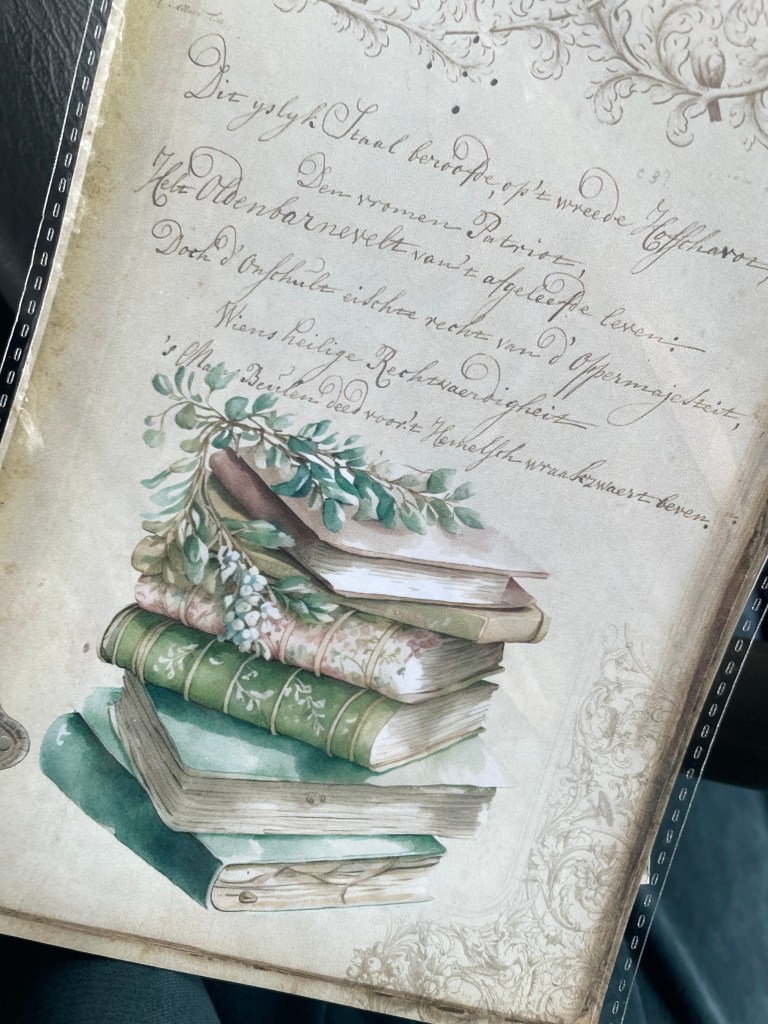 Dit yslyk Staal beroofde, op't wreede Hofschavot,
Den vromen Patriot,
Helt Oldenbarnevelt van't afgeleefde leven:
Doch d'Onschult eischte recht van d'Oppermajesteit,
Wiens heilige Rechtvaerdigheit
's Mans Beulen deed voor't Hemelsch wraakzwaert beven.